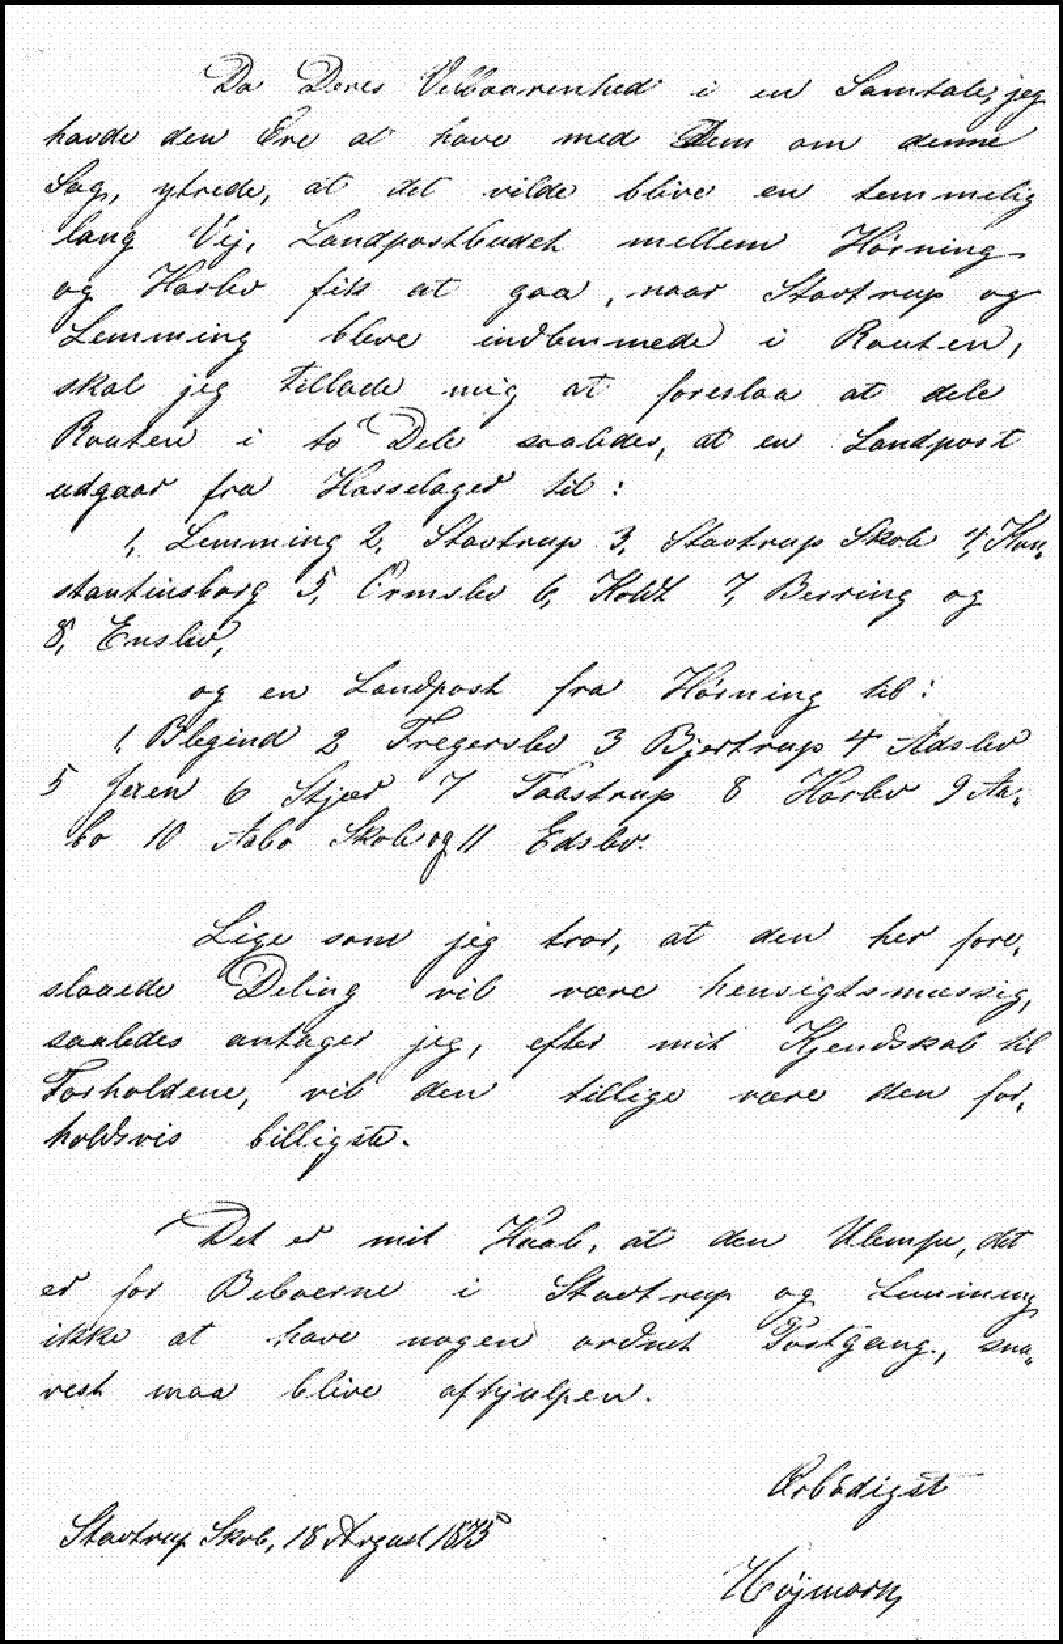 Da Deres Velbaarenhed i en Samtale, jeg
havde den Ære at have med Dem om denne
Sag, ytrede, at det vilde blive en temmelig
lang Vej, Landpostbudet mellem Hörning
og Harlev fik at gaa, naar Stavtrup og
Lemming bleve indlemmede i Routen,
skal jeg tillade mig at foreslaa at dele
Routen i to Dele saaledes, at en Landpost
udgaar fra Hasselager til:
1, Lemming 2, Stavtrup 3, Stavtrup Skole 4, Kon-
stantinsborg 5, Ormslev 6, Koldt 7, Berring og
8, Enslev,
og en Landpost fra Hörning til:
1, Blegind 2 Fregerslev 3 Bjertrup 4 Adslev
5 Jexen 6 Stjær 7 Taastrup 8 Harlev 9 Aa-
bo 10 Aabo Skole og 11 Edslev.
Lige som jeg tror, at den her fore-
slaaede Deling vil være hensigtsmæssig,
saaledes antager jeg, efter mit Kjendskab til
Forholdene, vil den tillige være den for-
holdsvis billigste.
Det er mit Haab, at den Ulempe, det
er for Beboerne i Stavtrup og Lemming
ikke at have nogen ordnet Postgang, sna-
rest maa blive afhjulpen.
Ærbödigst
Stavtrup Skole, 18 August 1875
Höjmark,